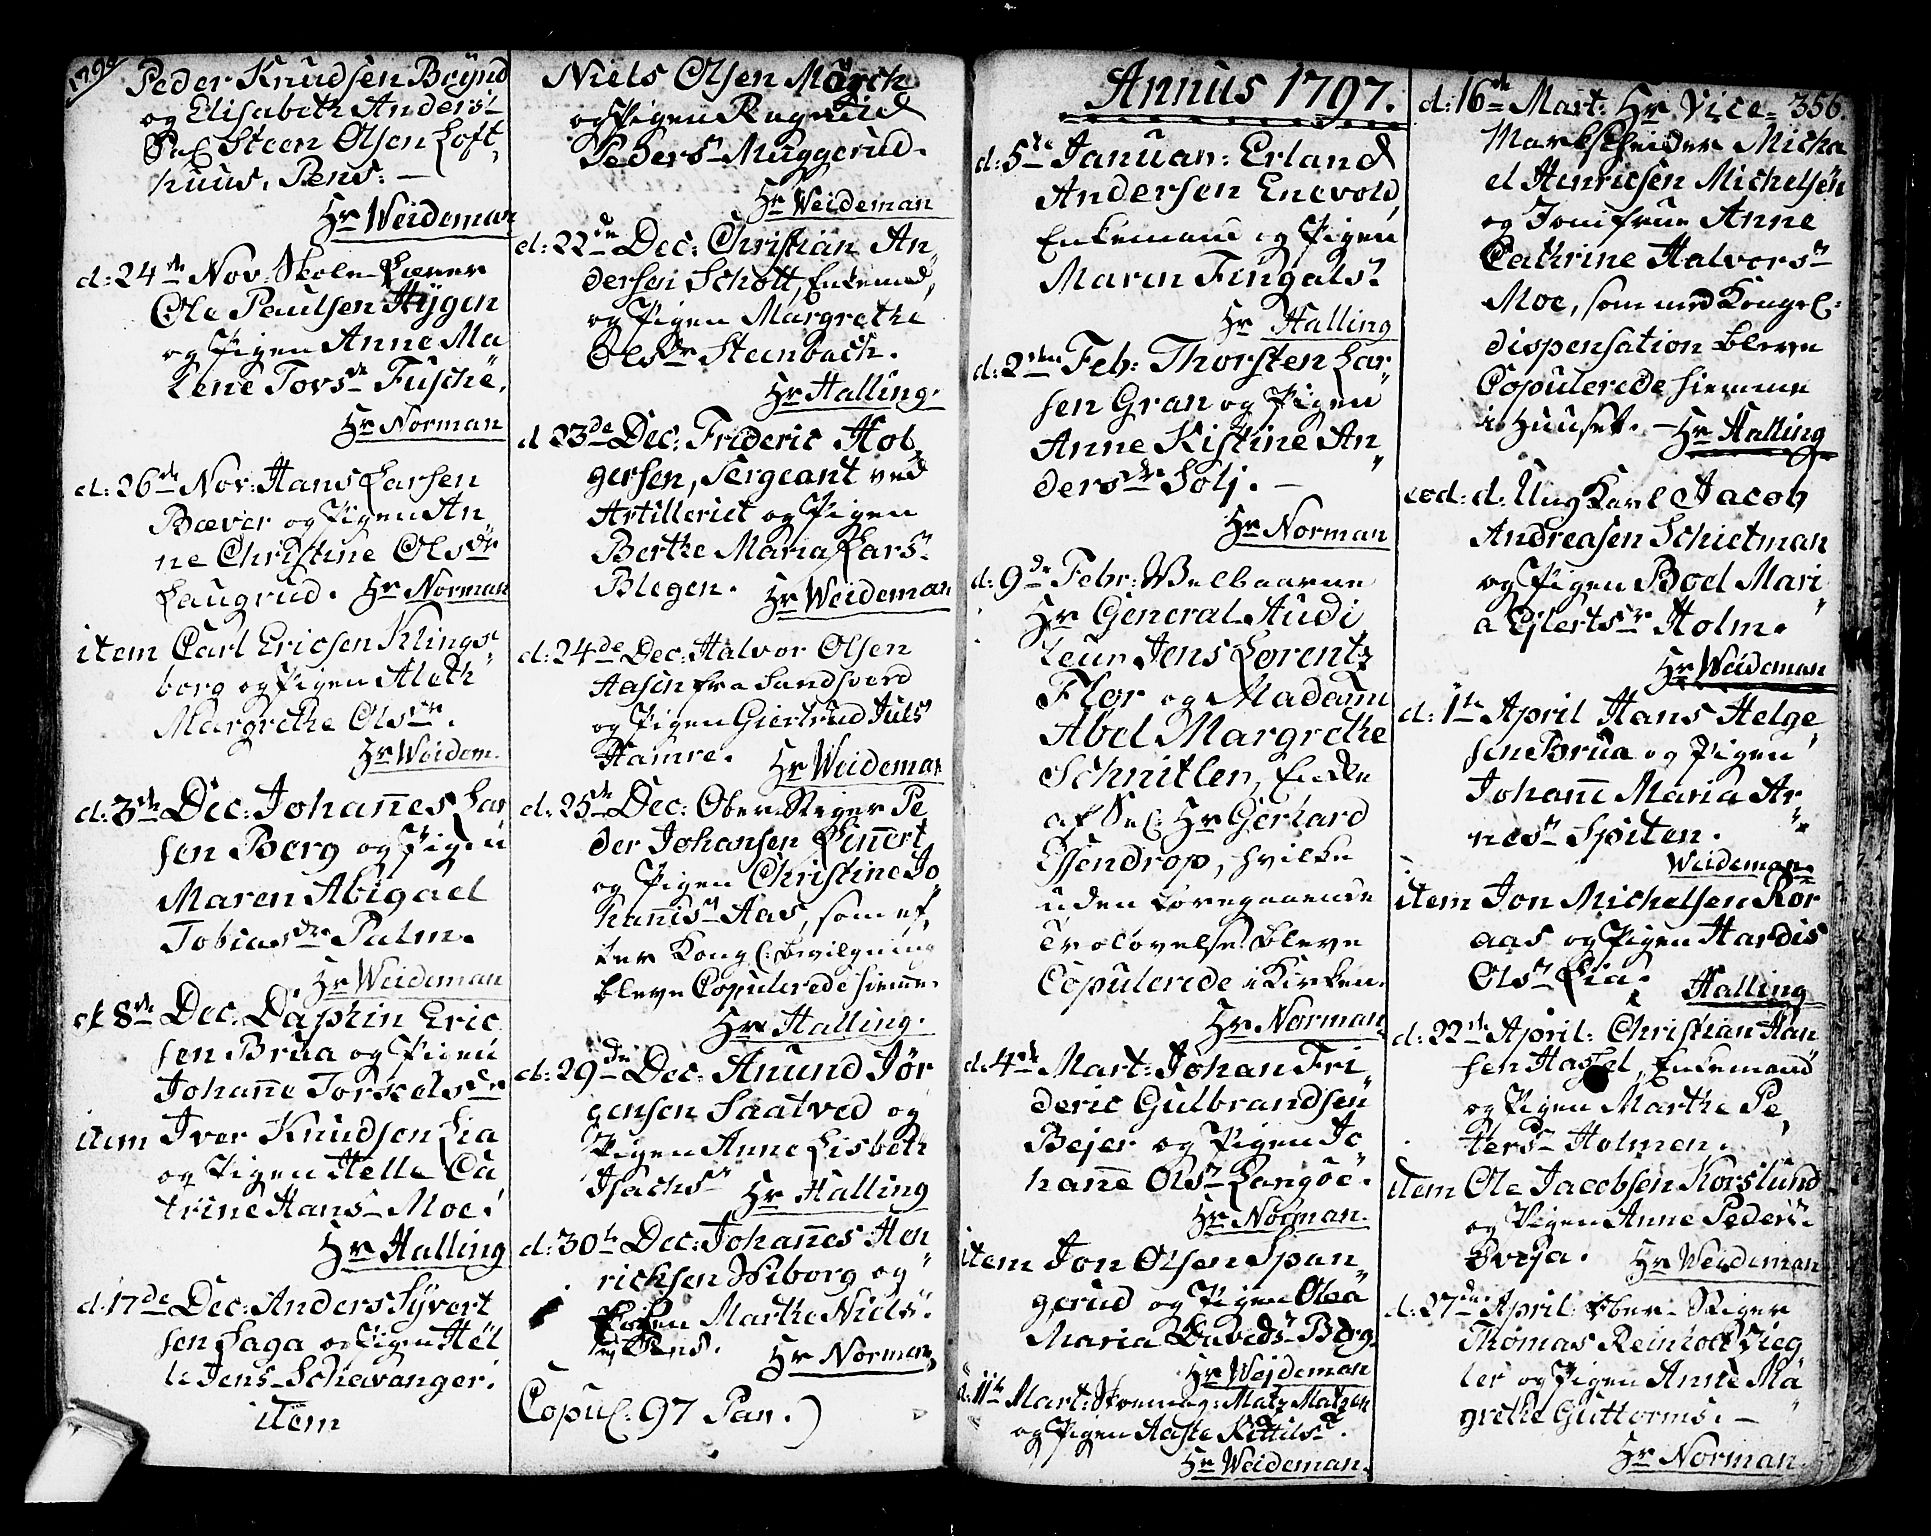 1796
Peder Knudsen Brynd
og Elisabeth Anders
Sal. Steen Olsen Loft
huus, Pens: —
Hr Weideman
d: 24de Nov: Skole Lærer
Ole Paulsen Hÿgen
og Pigen Anne Ma
lene Torsdr Fusche,
Hr Norman
d: 26de Nov: Hans Larsen
Bæver og Pigen An
ne Christine Olsdr
Laugrud. Hr Norman
item Carl Ericsen Klings
borg og Pigen Aleth
Margrethe Olsdr.
Hr Weidem.
d: 3de Dec: Johan̄es Lar
sen Berg og Pigen
Maren Abigael
Tobiasdr Palm.
Hr Weideman
d: 8de Dec: Daphin Eric
sen Brua og Pigen
Johan̄e Torkelsdr
item Iver Knudsen Lia
og Pigen Helle Ca
trine Hans- Moe.
Hr Halling
d: 17de Dec: Anders Syvert
sen Saga og Pigen Hel
le Jens- Schavanger.
item
Niels Olsen Mörch
og Pigen Ragnild
Peders- Muggerud.
Hr Weideman
d: 22de Dec: Christian An
dersen Schott, Enkemd,
og Pigen Margrethe
Olsdr Steenbach.
Hr Halling.
d 23de Dec: Frideric Hol
gersen, Sergeant ved
Artilleriet og Pigen
Berthe Maria Lars-
Blegen. Hr Weideman
d: 24de Dec: Halvor Olsen
Aasen fra Sandsverd
og Pigen Giertrud Juls
Hamre. Hr Weideman
d: 25de Dec: Ober Stiger Pe
der Johansen Lin̄ert
og Pigen Christine Jo
han̄is- Aas, som ef
ter Kongl: Bevilgning
bleve Copulerede hiem̄e.
Hr Halling.
d: 29de Dec: Anund Jör
gensen Saatved og
Pigen Anne Lisbeth
Isachs- Hr Halling
d: 30te Dec: Johan̄es Hen
richsen Wiborg og
Marthe Niels-
Pens. Hr Norman
Copul: 97 Par.)
Annus 1797.
d: 5te Januar: Erland
Andersen Enevold,
Enkemand og Pigen
Maren Fingals-
Hr Halling
d: 2den Feb: Thorsten Lar
sen Gran og Pigen
Anne Kistine An
dersdr Solj. —
Hr Norman
d: 9de Febr: Velbaarne
Hr General Audi
teur Jens Lorentz
Flor og Madam
Abel Margrethe
Schnitler, Enke
af Sal: Hr Gerhard
Essendrop, hvilke
uden foregaaende
Trolovelse bleve
Copulerede i Kirken.
Hr Norman
d: 4de Mart: Johan Fri
deric Gulbrandsen
Bejer og Pigen Jo
han̄e Ols- Langöe.
Hr Norman.
item Jon Olsen Span
gerud og Pigen Olea
Maria Davids- Berg
Hr Weideman
d: 11te Mart: Matz Matzen
og Pigen Aaste Kittils-
Hr Weideman.
356
d: 16de Mart: Hr Vice-
Markscheider Micha
el Henricsen Michelsen
og Jomfrue Anne
Cathrine Halvors-
Moe, som med Kongel:
dispensation bleve
Copulerede hiemme
i Huuset. — Hr Halling
eod: d: Ung Karl Jacob
Andreasen Schietman
og Pigen Boel Mari
a Eylerts- Holm.
Hr Weideman
d: 1te April Hans Helge
sen Brua og Pigen
Johan̄e Maria Ar
nes- Spiten.
Weideman
item Jon Michelsen Ror
aas og Pigen Hardis
Ols- Lia. Halling
d: 22de April: Christian Han
sen Hassel, Enkemand
og Pigen Marthe Pe
ters- Holmen.
item Ole Jacobsen Korslund
og Pigen Anne Peders-
Oveja. Hr Weideman
d: 27de April: Ober- Stiger
Thomas Reinholt Zieg
ler og Pigen Anne Ma
grethe Guttorms. —
Hr Norman.